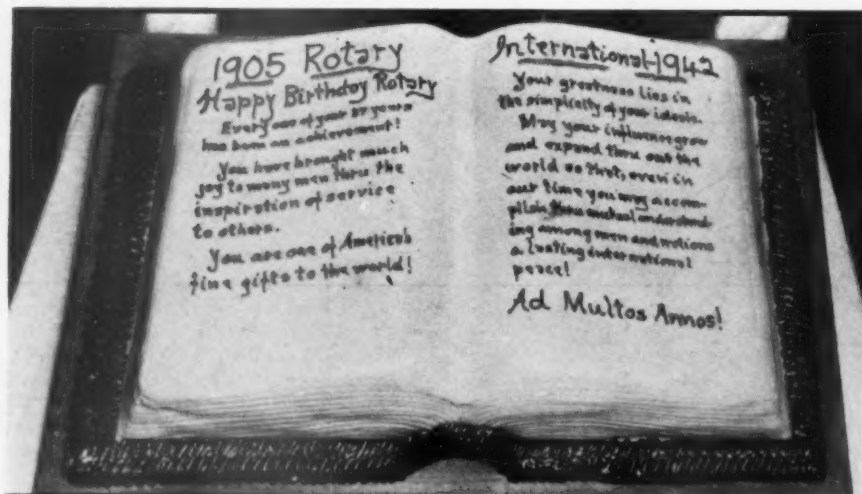 1905 Rotary
Happy Birthday Rotary
Every one of your 37 years
has been an achievement!
You have brought much
joy to many men thru the
inspiration of service
to others.
You are one of America's
fine gifts to the world!
International-1942
Your greatness lies in
the simplicity of your ideals.
May your influence grow
and expand thru out the
world so that, even in
our time you may accom-
plish, thru mutual understand-
ing among men and nations
a lasting international
peace!
Ad Multos Annos!